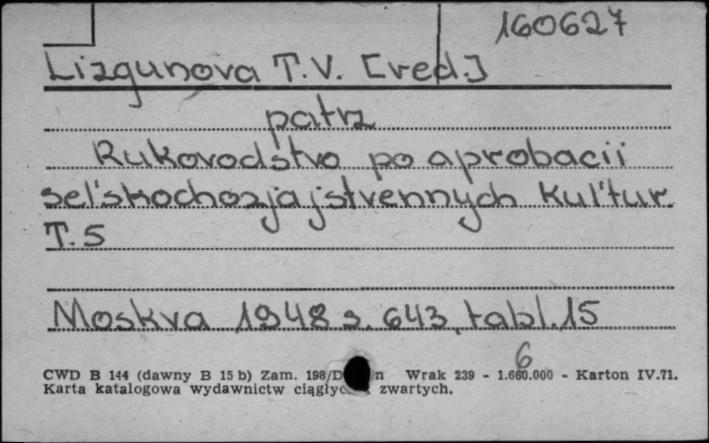 160627
Lizgunova T.V. [red.]
patrz
Rukovodstvo po aprobacii
sel'skochozjajstvennych kul'tur
T. 5
Moskva 1948 s. 643, tabl. 15
6
CWD B 144 (dawny B 15 b) Zam. 198/D n Wrak 239 - 1.660.000 - Karton IV.71.
Karta katalogowa wydawnictw zwartych.